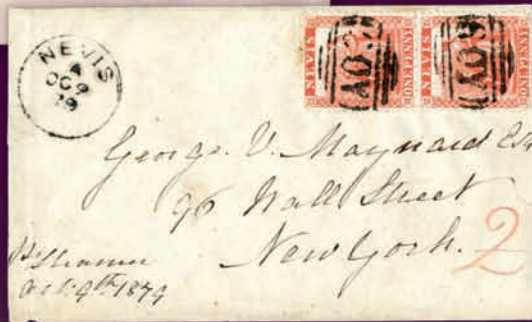 NEVIS
A
OC 9
79
NEVIS
ONE PENNY
A09
NEVIS
ONE PENNY
A09
George. V. Maynard Esq
96 Wall Street
New York.
2
Steamer
Oct. 9th 1879